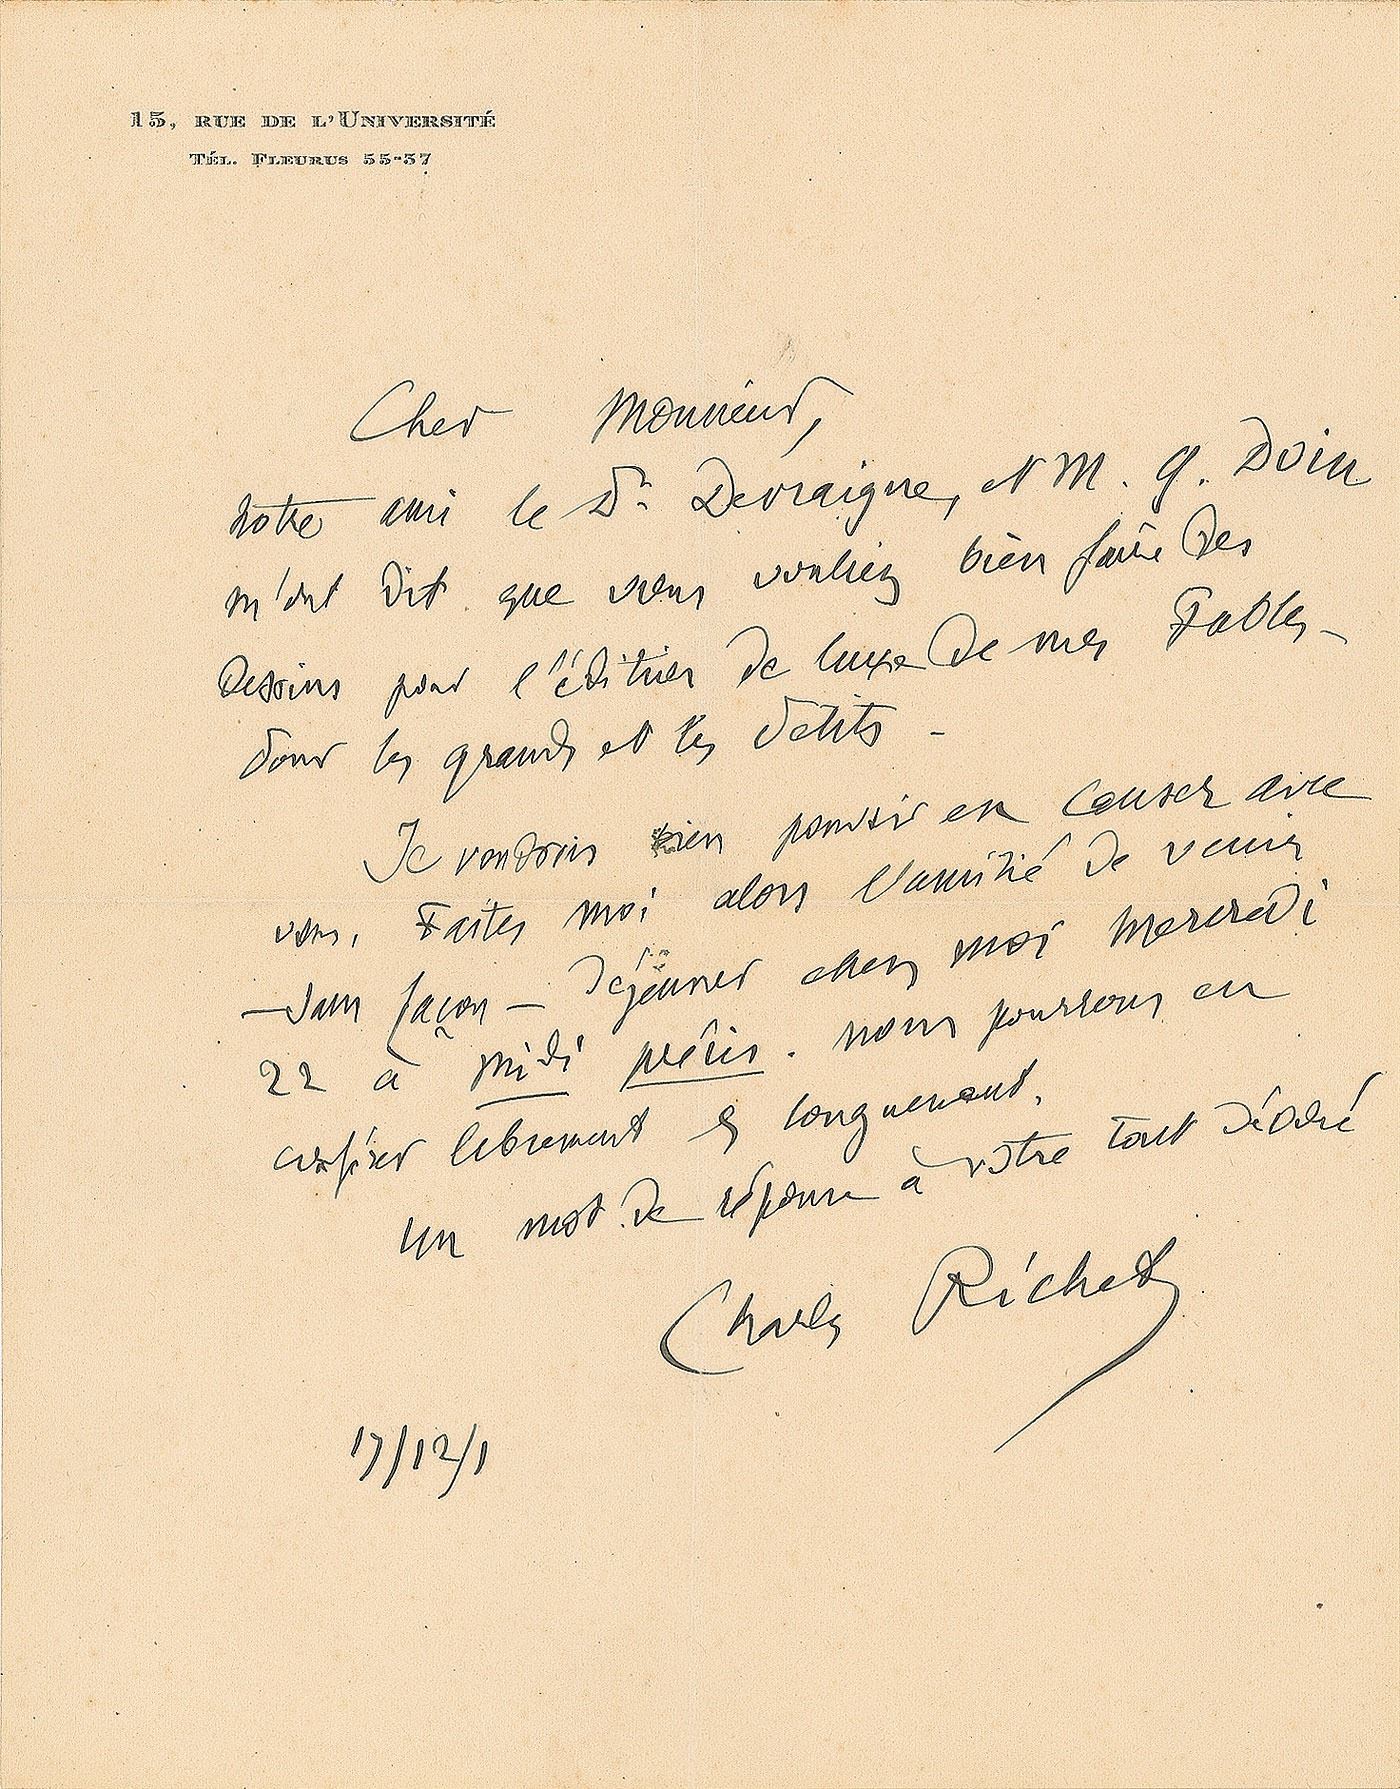 15, RUE DE L'UNIVERSITÉ
TÉL. FLEURUS 55-37
Cher Monsieur,
notre ami le Dr Devraigne, et M. G. Doin
m'ont dit que vous vouliez bien faire des
dessins pour l'édition de luxe de mes Fables
pour les grands et les petits -
Je voudrais bien pouvoir en causer avec
vous. Faites moi alors l'amitié de venir
— sans façon — déjeuner chez moi mercredi
22 à midi précis. nous pourrons en
causer librement & longuement.
Un mot de réponse à votre tout dévoué
Charles Richet
17/12/1